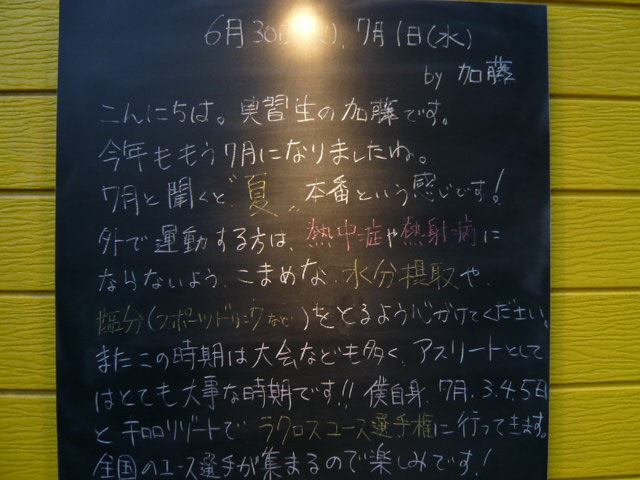 6月30日(),7月1日(水)
by 加藤
こんにちは。実習生の加藤です。
今年ももう7月になりましたね。
7月と聞くと〝夏〟本番という感じです!
外で運動する方は、熱中症や熱射病に
ならないよう、こまめな水分摂取や、
塩分(スポーツドリンクなど)をとるよう心がけてください。
またこの時期は大会なども多く、アスリートとして
はとても大事な時期です!!僕自身、7月、3.4.5日
とキロロリゾートでラクロスユース選手権に行ってきます。
全国のユース選手が集まるので楽しみです!